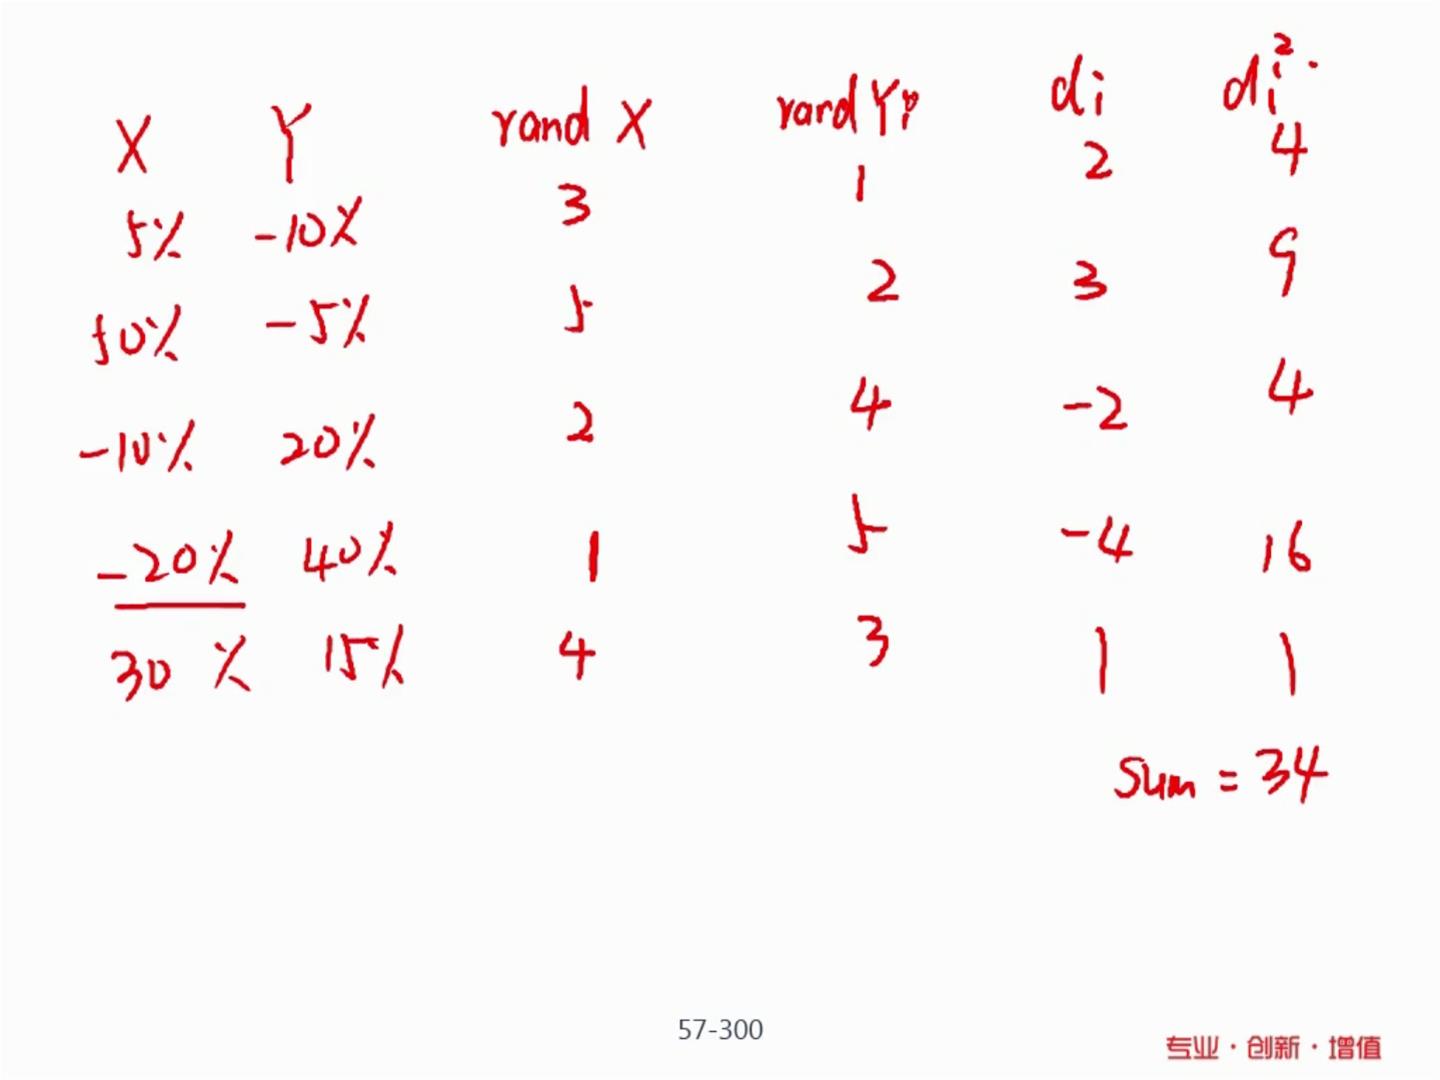 X Y rand X rand Yi di di²
5% -10% 3 1 2 4
50% -5% 5 2 3 9
-10% 20% 2 4 -2 4
-20% 40% 1 5 -4 16
30% 15% 4 3 1 1
Sum = 34
57-300
专业·创新·增值